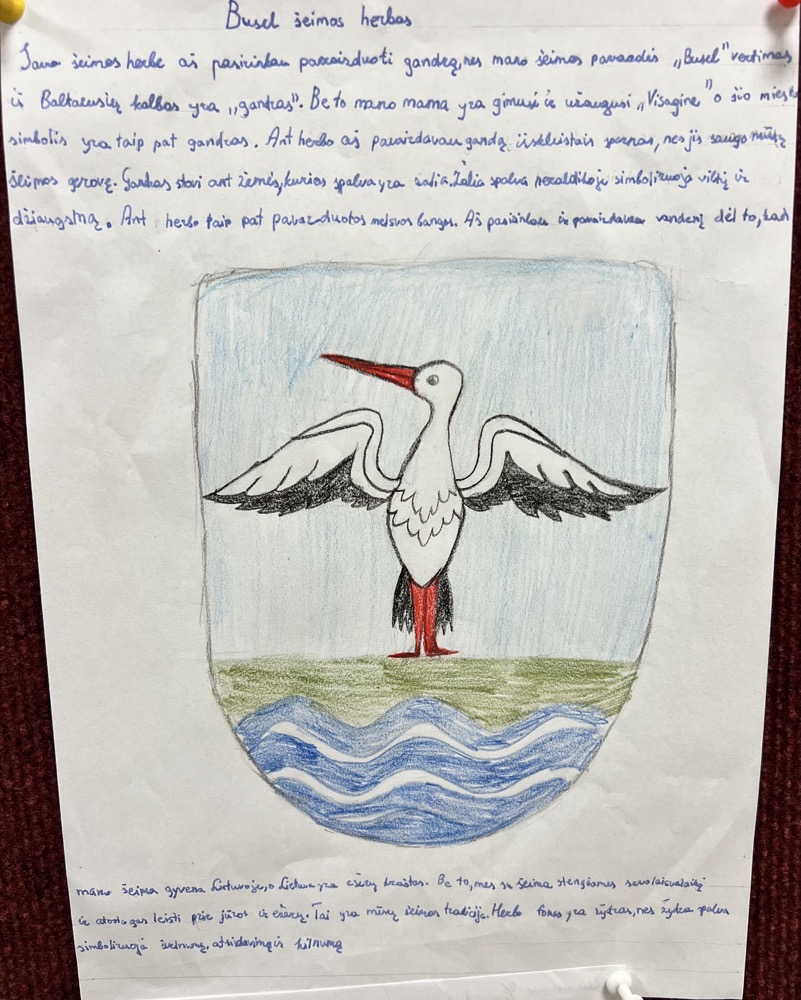 Busel šeimos herbas
Savo šeimos herbe aš pasirinkau pavaizduoti gandrą, nes mano šeimos pavardės „Busel" vertimas
iš Baltarusių kalbos yra „gandras". Be to mano mama yra gimusi ir užaugusi „Visagine" o šio miesto
simbolis yra taip pat gandras. Ant herbo aš pavaizdavau gandą išskleistais sparnas, nes jis saugo mūsų
šeimos gerovę. Gandras stovi ant žemės, kurios spalva yra žalia. Žalia spalva heraldikoje simbolizuoja viltį ir
džiaugsmą. Ant herbo taip pat pavaizduotos melsvos bangos. Aš pasirinkau ir pavaizdavau vandenį dėl to, kad
mano šeima gyvena Lietuvoje, o Lietuva yra ežerų kraštas. Be to, mes su šeima stengiamės savo laisvalaikį
ir atostogas leisti prie jūros ir ežerų. Tai yra mūsų šeimos tradicija. Herbo fonas yra žydras, nes žydra spalva
simbolizuoja ištikimumą, atsidavimą ir kilnumą